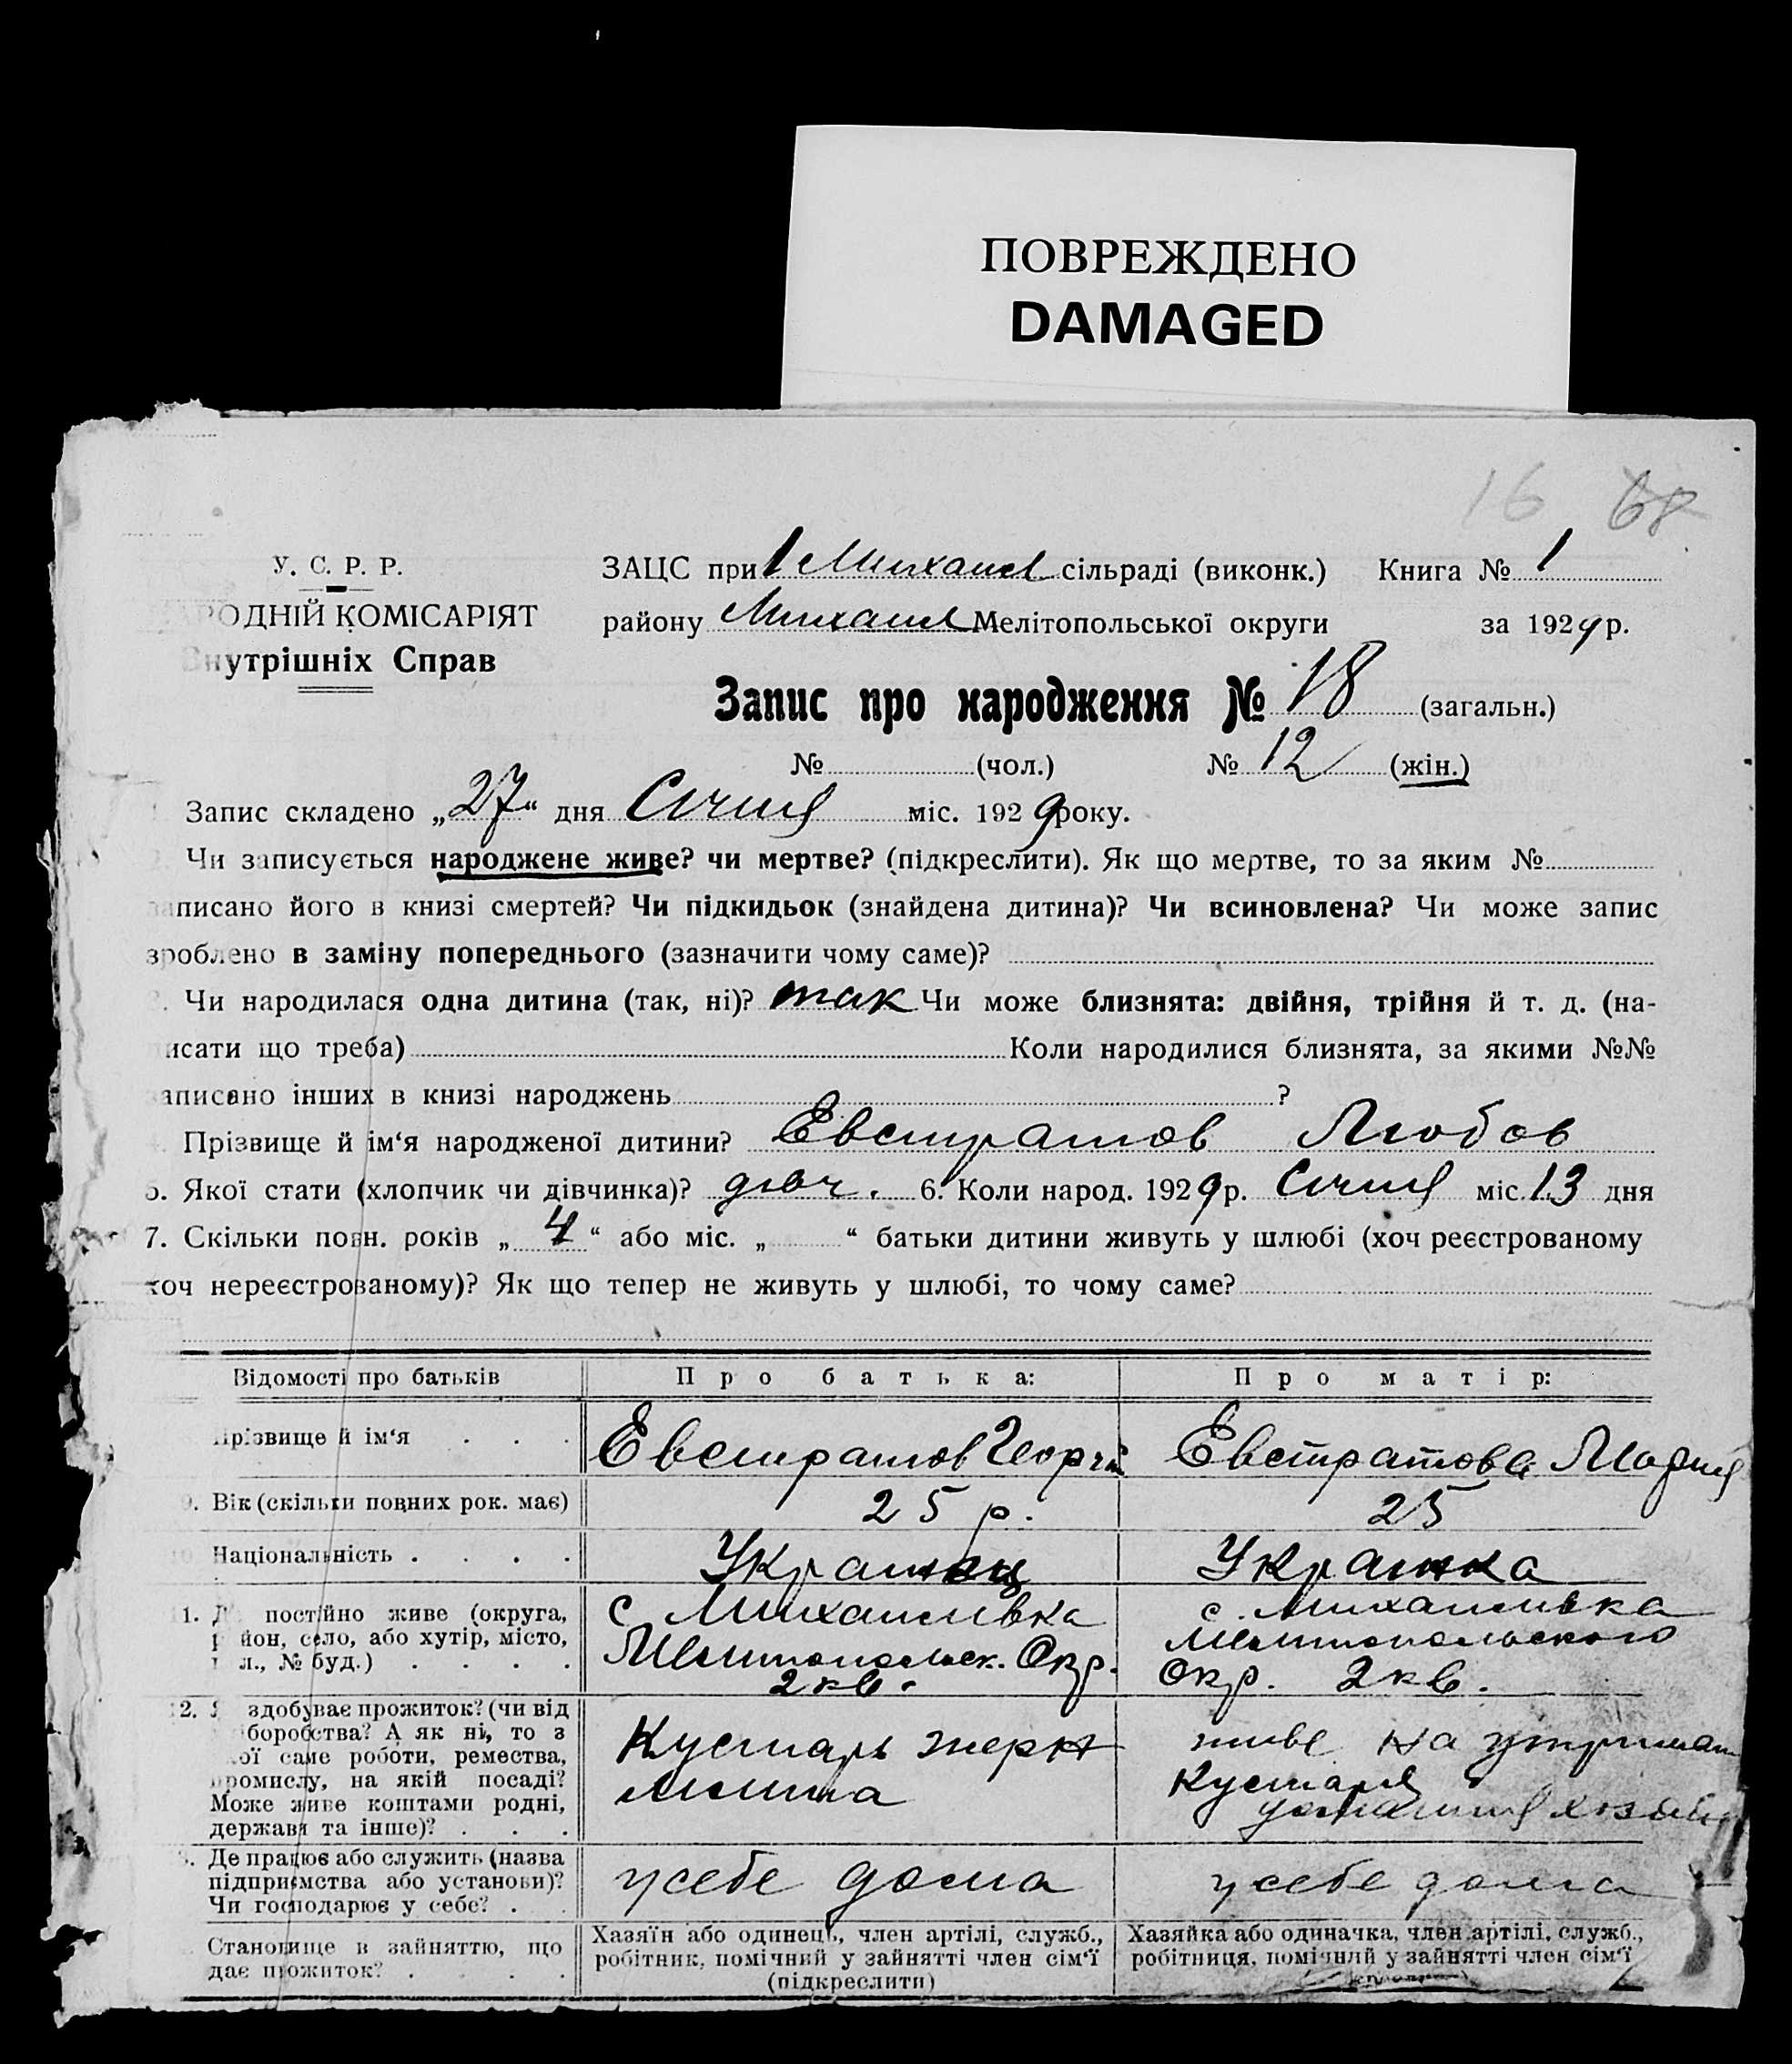 ПОВРЕЖДЕНО
DAMAGED
16 68
У. С. Р. Р.
РОДНІЙ КОМІСАРІЯТ
Внутрішніх Справ
ЗАЦС при 1 Михаил сільраді (виконк.) Книга № 1
району Михаил Мелітопольської округи за 1929 р.
Запис про народження № 18 (загальн.)
№ (чол.) № 12 (жін.)
Запис складено „27“ дня Січня міс. 1929 року.
Чи записується народжене живе? чи мертве? (підкреслити). Як що мертве, то за яким №
записано його в книзі смертей? Чи підкидьок (знайдена дитина)? Чи всиновлена? Чи може запис
зроблено в заміну попереднього (зазначити чому саме)?
Чи народилася одна дитина (так, ні)? так Чи може близнята: двійня, трійня й т. д. (на-
писати що треба) Коли народилися близнята, за якими №№
записано інших в книзі народжень ?
Прізвище й ім‘я народженої дитини? Евстратов Любов
5. Якої стати (хлопчик чи дівчинка)? дівч. 6. Коли народ. 1929 р. Січня міс. 13 дня
7. Скільки повн. років „4“ або міс. „ “ батьки дитини живуть у шлюбі (хоч реєстрованому
хоч нереєстрованому)? Як що тепер не живуть у шлюбі, то чому саме?
Відомості про батьків Про батька: Про матір:
Прізвище й ім‘я . . . Евстратов Георгій Евстратова Мария
9. Вік (скільки повних рок. має) 25 р. 25
10. Національність . . . . Украинец Украинка
11. Д постійно живе (округа,
район, село, або хутір, місто,
л., № буд.) . . . .
с Михаилівка
Мелитопольск. Окр.
2 кв.
с. Михаилівка
Мелитопольского
Окр. 2 кв.
12. здобуває прожиток? (чи від
боробства? А як ні, то з
ої саме роботи, ремества,
промислу, на якій посаді?
Може живе коштами родні,
держави та інше)? . . .
Кустарь
живе на утриман
Кустаря
Де працює або служить (назва
підприємства або установи)?
Чи господарює у себе? . .
у себе дома у себе дома
Становище в зайняттю, що
дає прожиток? . . . .
Хазяїн або одинець, член артілі, служб.,
робітник, помічний у зайнятті член сім‘ї
(підкреслити)
Хазяйка або одиначка, член артілі, служб.,
робітниця, помічний у зайнятті член сім‘ї